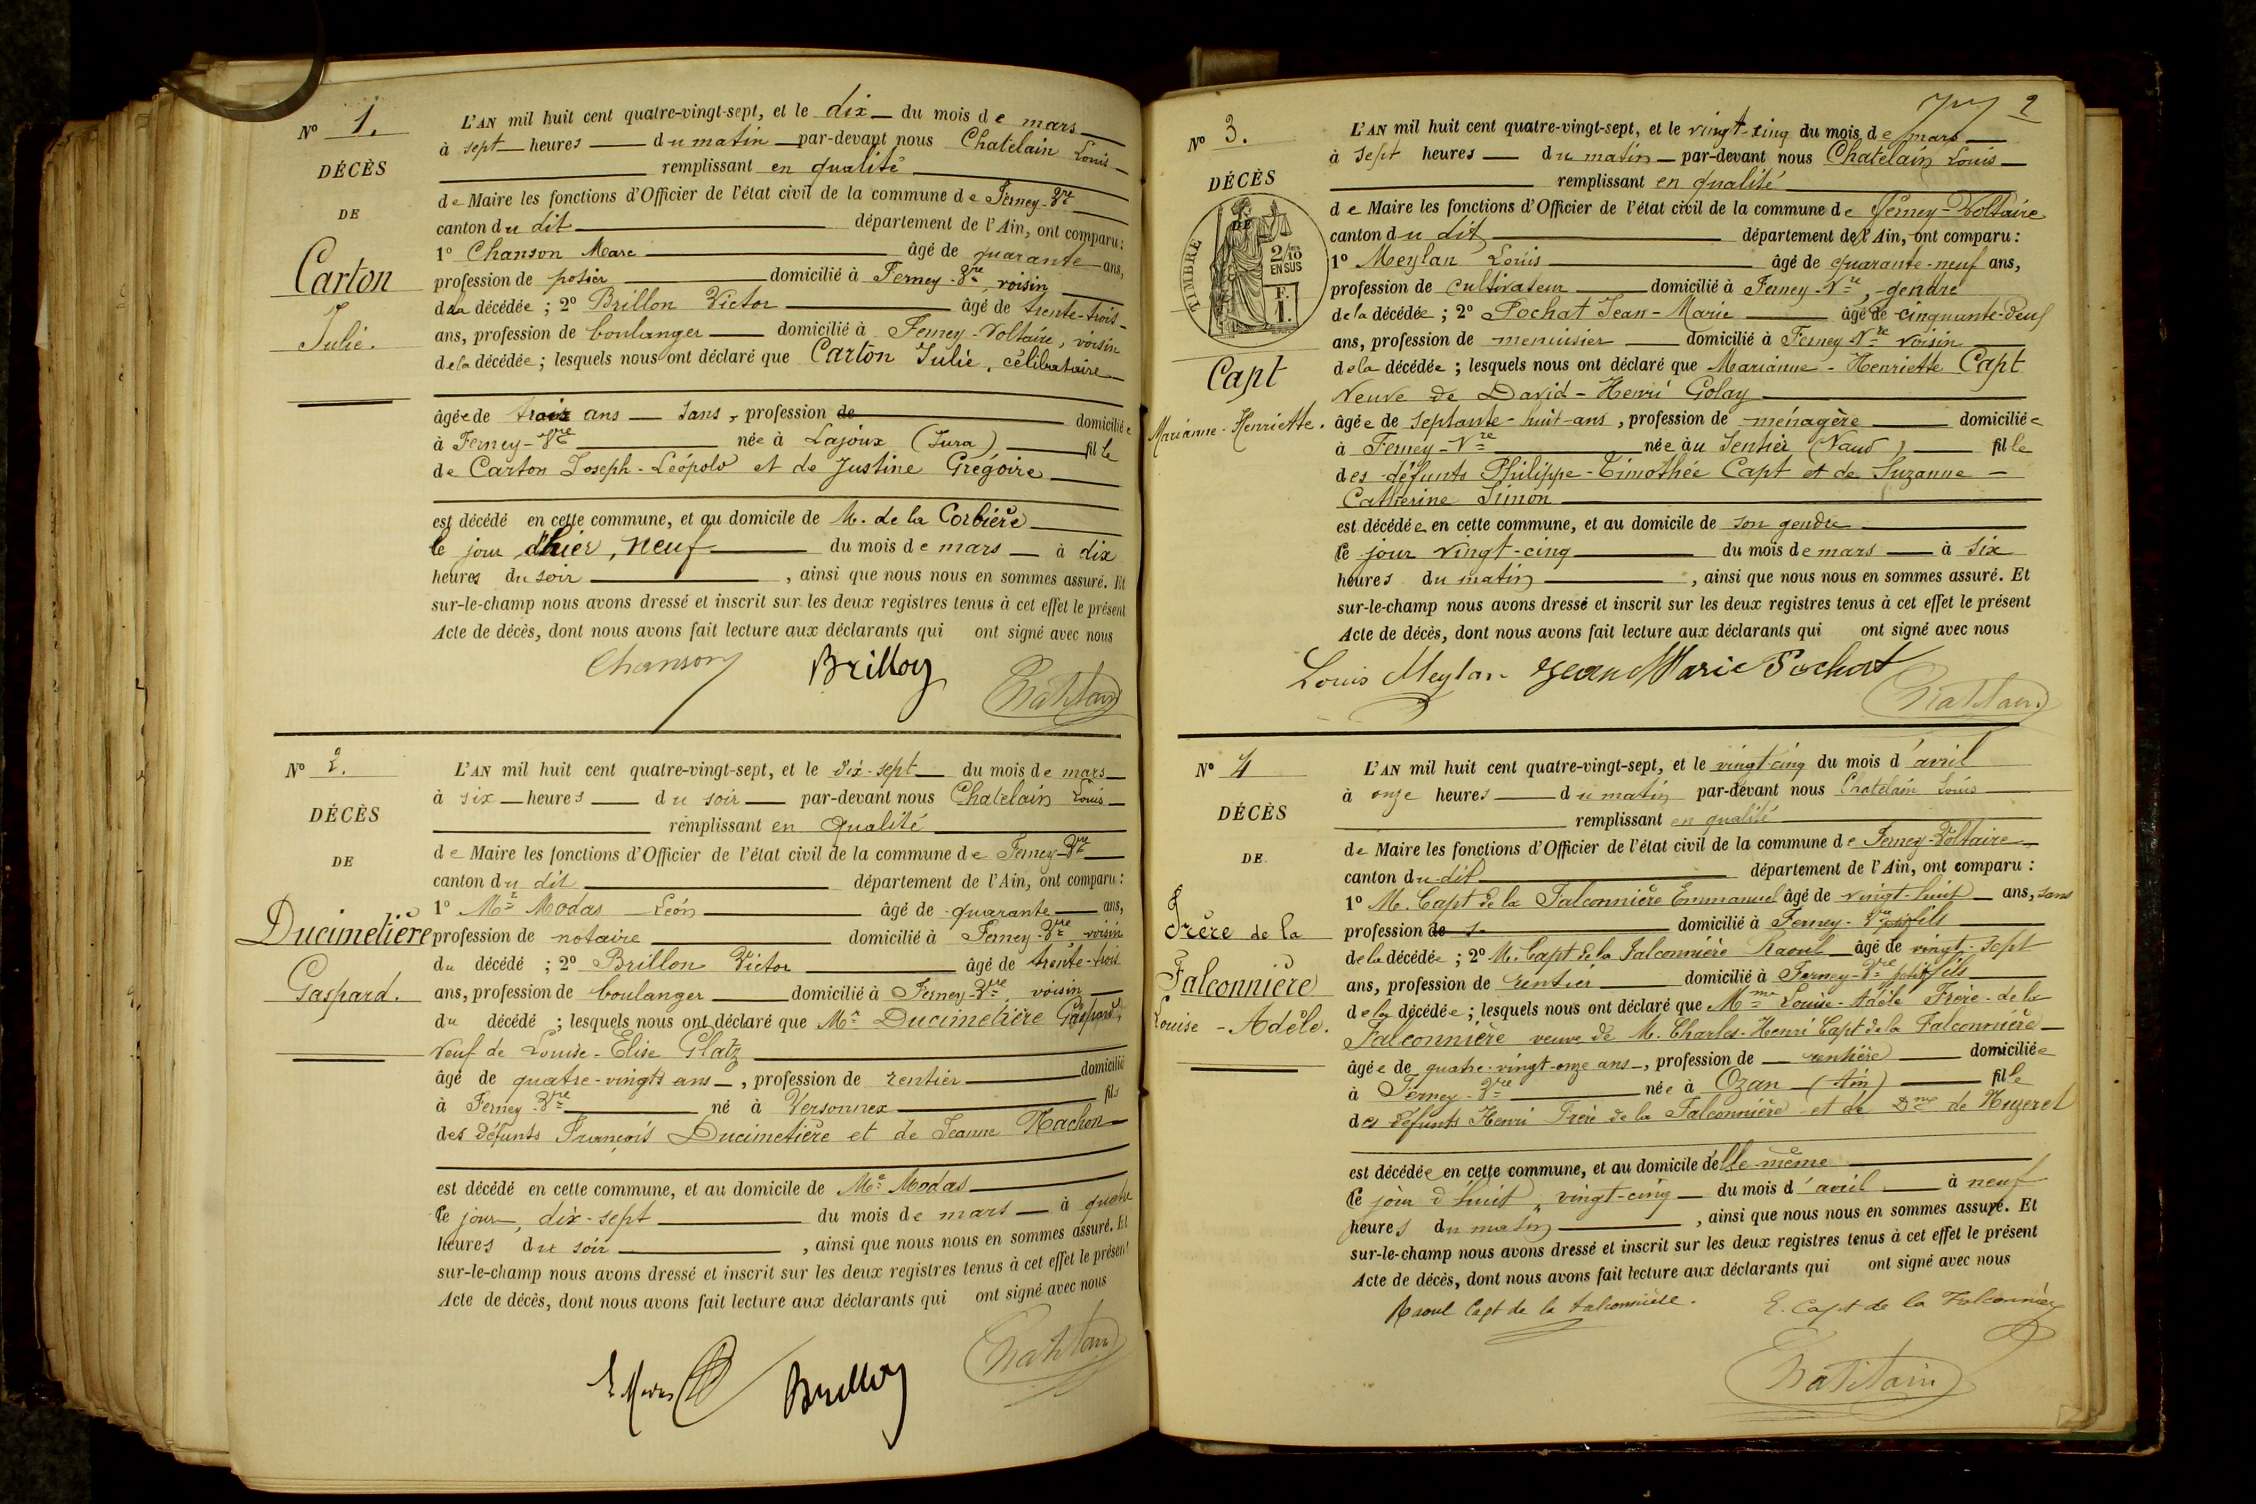 No 1.
DÉCÈS
DE
Carton
Julie.
L'AN mil huit cent quatre-vingt-sept, et le dix du mois de mars
à sept heures du matin par-devant nous Chatelain Louis
remplissant en qualité
de Maire les fonctions d'Officier de l'état civil de la commune de Ferney-Vre
canton du dit département de l'Ain, ont comparu :
1o Chanson Marc âgé de quarante ans,
profession de potier domicilié à Ferney-Vre, voisin
de la décédée ; 2o Brillon Victor âgé de trente-trois
ans, profession de boulanger domicilié à Ferney-Voltaire, voisin
de la décédée ; lesquels nous ont déclaré que Carton Julie, célibataire
âgée de ans sans, profession de domiciliée
à Ferney-Vre née à Lajoux (Jura) fille
de Carton Joseph-Léopold et de Justine Grégoire
est décédé en cette commune, et au domicile de M. de la Corbière
le jour d'hier, neuf du mois de mars à dix
heures du soir , ainsi que nous nous en sommes assuré. Et
sur-le-champ nous avons dressé et inscrit sur les deux registres tenus à cet effet le présent
Acte de décès, dont nous avons fait lecture aux déclarants qui ont signé avec nous
Chanson Brillon Chatelain
No 2.
DÉCÈS
DE
Ducimetière
Gaspard.
L'AN mil huit cent quatre-vingt-sept, et le dix-sept du mois de mars
à six heures du soir par-devant nous Chatelain Louis
remplissant en qualité
de Maire les fonctions d'Officier de l'état civil de la commune de Ferney-Vre
canton du dit département de l'Ain, ont comparu :
1o Me Modas Léon âgé de quarante ans,
profession de notaire domicilié à Ferney-Vre, voisin
du décédé ; 2o Brillon Victor âgé de trente-trois
ans, profession de boulanger domicilié à Ferney-Vre, voisin
du décédé ; lesquels nous ont déclaré que Mr Ducimetière Gaspard,
veuf de Louise-Elise Glatz
âgé de quatre-vingts ans, profession de rentier domicilié
à Ferney-Vre né à Versonnex fils
des défunts François Ducimetière et de Jeanne Machon
est décédé en cette commune, et au domicile de Me Modas
le jour, dix-sept du mois de mars à quatre
heures du soir , ainsi que nous nous en sommes assuré. Et
sur-le-champ nous avons dressé et inscrit sur les deux registres tenus à cet effet le présent
Acte de décès, dont nous avons fait lecture aux déclarants qui ont signé avec nous
Brillon Chatelain
2
No 3.
DÉCÈS
DE
TIMBRE
2/10
EN SUS
F.
1.
Capt
Marianne-Henriette.
L'AN mil huit cent quatre-vingt-sept, et le vingt-cinq du mois de mars
à sept heures du matin par-devant nous Chatelain Louis
remplissant en qualité
de Maire les fonctions d'Officier de l'état civil de la commune de Ferney-Voltaire
canton du dit département de l'Ain, ont comparu :
1o Meylan Louis âgé de quarante-neuf ans,
profession de cultivateur domicilié à Ferney-Vre, gendre
de la décédée ; 2o Pochat Jean-Marie âgé de cinquante-deux
ans, profession de menuisier domicilié à Ferney-Vre voisin
de la décédée ; lesquels nous ont déclaré que Marianne-Henriette Capt
veuve de David-Henri Golay
âgée de septante-huit ans, profession de ménagère domiciliée
à Ferney-Vre née au Sentier (Vaud) fille
des défunts Philippe-Timothée Capt et de Suzanne-
Catherine Simon
est décédée en cette commune, et au domicile de son gendre
le jour vingt-cinq du mois de mars à six
heures du matin , ainsi que nous nous en sommes assuré. Et
sur-le-champ nous avons dressé et inscrit sur les deux registres tenus à cet effet le présent
Acte de décès, dont nous avons fait lecture aux déclarants qui ont signé avec nous
Louis Meylan Jean Marie Pochat
Chatelain
No 4
DÉCÈS
DE
Frère de la
Falconnière
Louise-Adèle.
L'AN mil huit cent quatre-vingt-sept, et le vingt cinq du mois d'avril
à onze heures du matin par-devant nous Chatelain Louis
remplissant en qualité
de Maire les fonctions d'Officier de l'état civil de la commune de Ferney-Voltaire
canton du dit département de l'Ain, ont comparu :
1o M. Capt de la Falconnière Emmanuel âgé de vingt-huit ans, sans
profession de domicilié à Ferney-Vre petit fils
de la décédée ; 2o M. Capt de la Falconnière Raoul âgé de vingt-sept
ans, profession de rentier domicilié à Ferney-Vre petit fils
de la décédée ; lesquels nous ont déclaré que Mme Louise-Adèle Frère-de la
Falconnière veuve de M. Charles-Henri Capt de la Falconnière
âgée de quatre-vingt-onze ans, profession de rentière domiciliée
à Ferney-Vre née à Ozan (Ain) fille
des défunts Henri Frère de la Falconnière et de Dme de
est décédée en cette commune, et au domicile d'elle-même
le jour d'huit, vingt-cinq du mois d'avril à neuf
heures du matin , ainsi que nous nous en sommes assuré. Et
sur-le-champ nous avons dressé et inscrit sur les deux registres tenus à cet effet le présent
Acte de décès, dont nous avons fait lecture aux déclarants qui ont signé avec nous
Raoul Capt de la Falconnière. E. Capt de la Falconnière
Chatelain